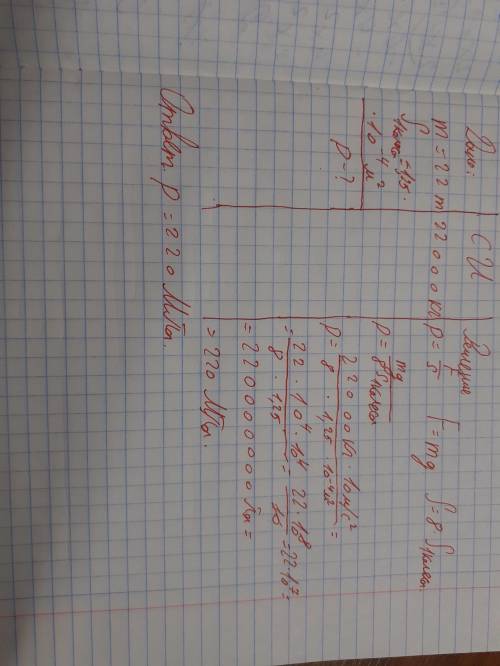 Дано:
m = 22 т
S 1 колеса = 1,25 ·
· 10⁻⁴ м²
p = ?
СИ
22000 кг
Решение
p = F/S F = mg S = 8 · S 1 колеса
p = mg / 8 S 1 колеса
p = 22000 кг · 10 м/с² / 8 · 1,25 · 10⁻⁴ м² =
= 22 · 10⁴ · 10⁴ / 8 · 1,25 = 22 · 10⁸ / 10 = 22 · 10⁷ =
= 220000000 Па =
= 220 МПа.
Ответ. p = 220 МПа.